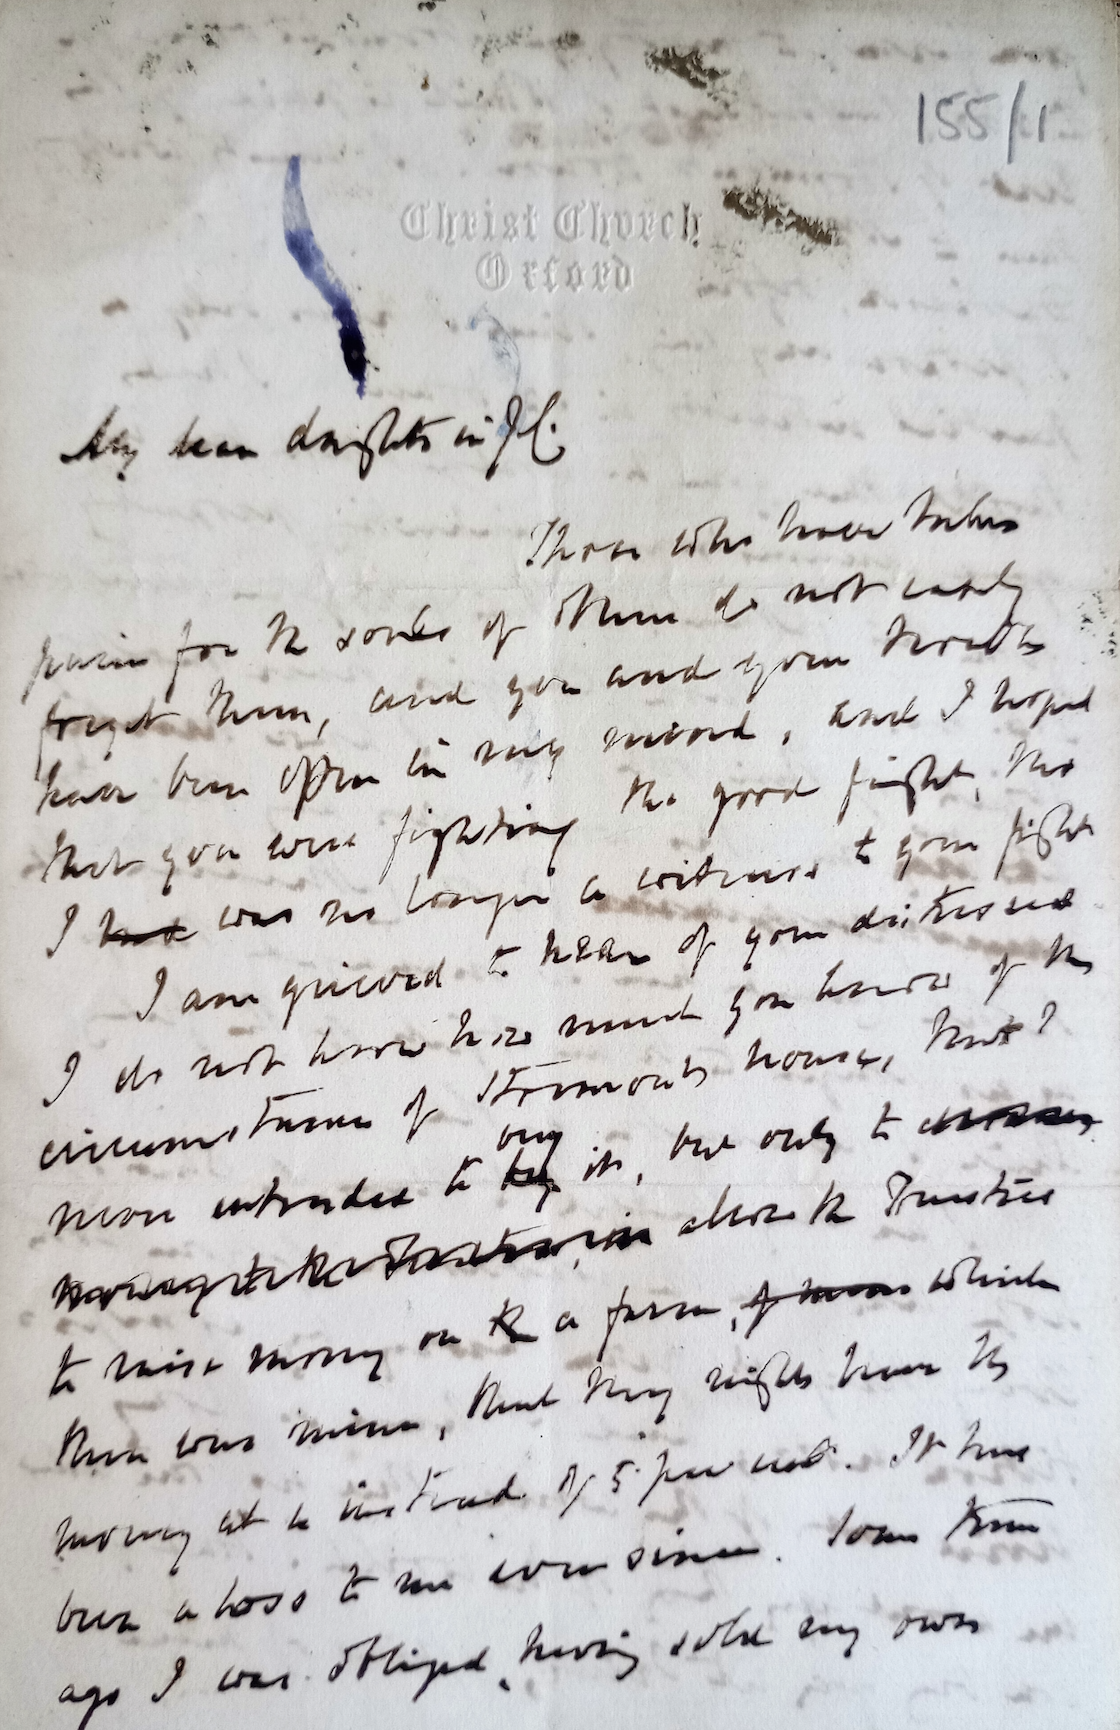 155/1
Christ Church
Oxford
My dear daughter in J.C.
Those who have taken
pains for the souls of others do not easily
forget them, and you and your
have been often in my mind, and I hoped
that you were fighting the good fight, tho
I had was no longer a witness to your fight
I am grieved to hear of your distress and
I do not know how much you know of the
circumstances of house, that I
never intended to buy buy it, but only to
allow the Trustees
to raise money on the a farm, which
then was mine, that they might have the
money at 4 instead of 5 per cent. It has
been a loss to me ever since. Some time
ago I was obliged, having sold my own